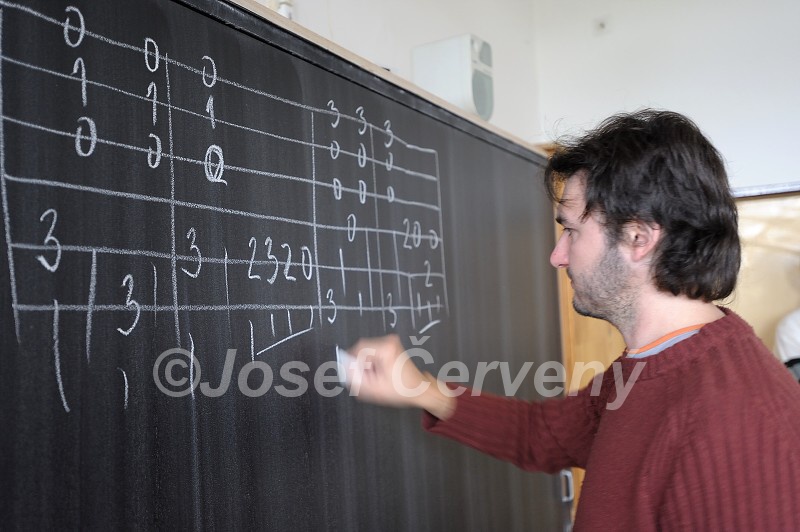 0 0 0 3 3 3
1 1 1 0 0 0
0 0 0 0 0 0
0 2 0 0
3 3 2 3 2 0 1 2
3 3 1 3
© Josef Červeny